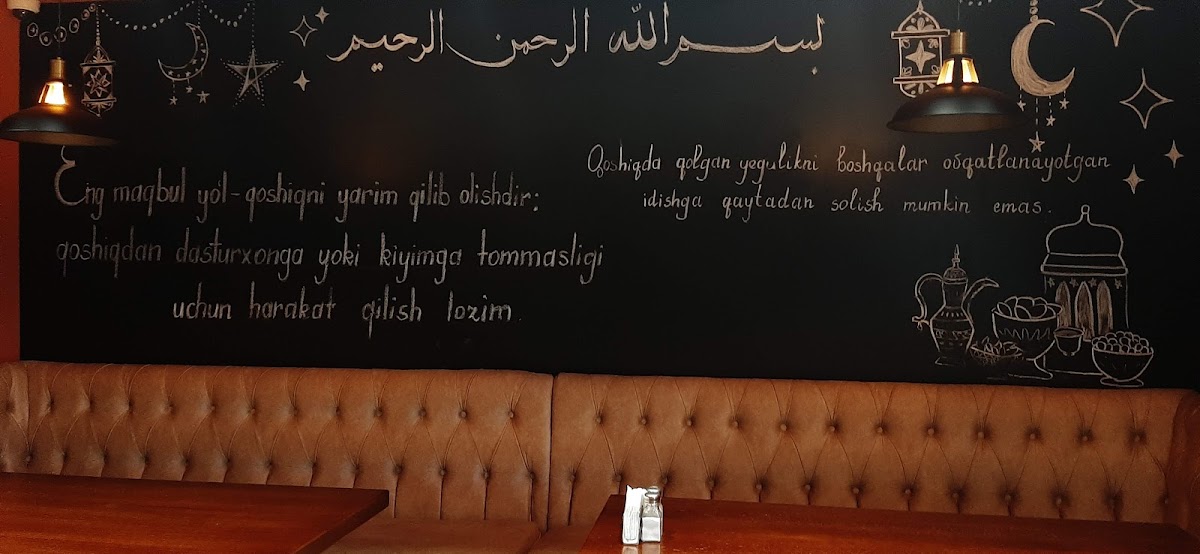 بسم الله الرحمن الرحيم
Eng maqbul yo'l - qoshiqni yarim qilib olishdir;
qoshiqdan dasturxonga yoki kiyimga tommasligi
uchun harakat qilish lozim.
Qoshiqda qolgan yegulikni boshqalar ovqatlanayotgan
idishga qaytadan solish mumkin emas.